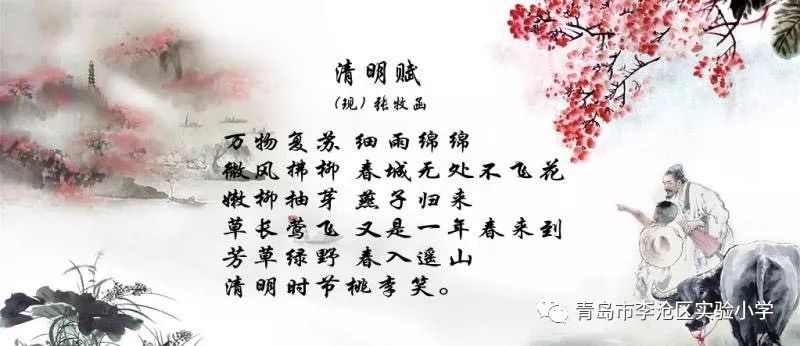 清明赋
（现）张牧函
万物复苏 细雨绵绵
微风拂柳 春城无处不飞花
嫩柳抽芽 燕子归来
草长莺飞 又是一年春来到
芳草绿野 春入遥山
清明时节桃李笑。
青岛市李沧区实验小学